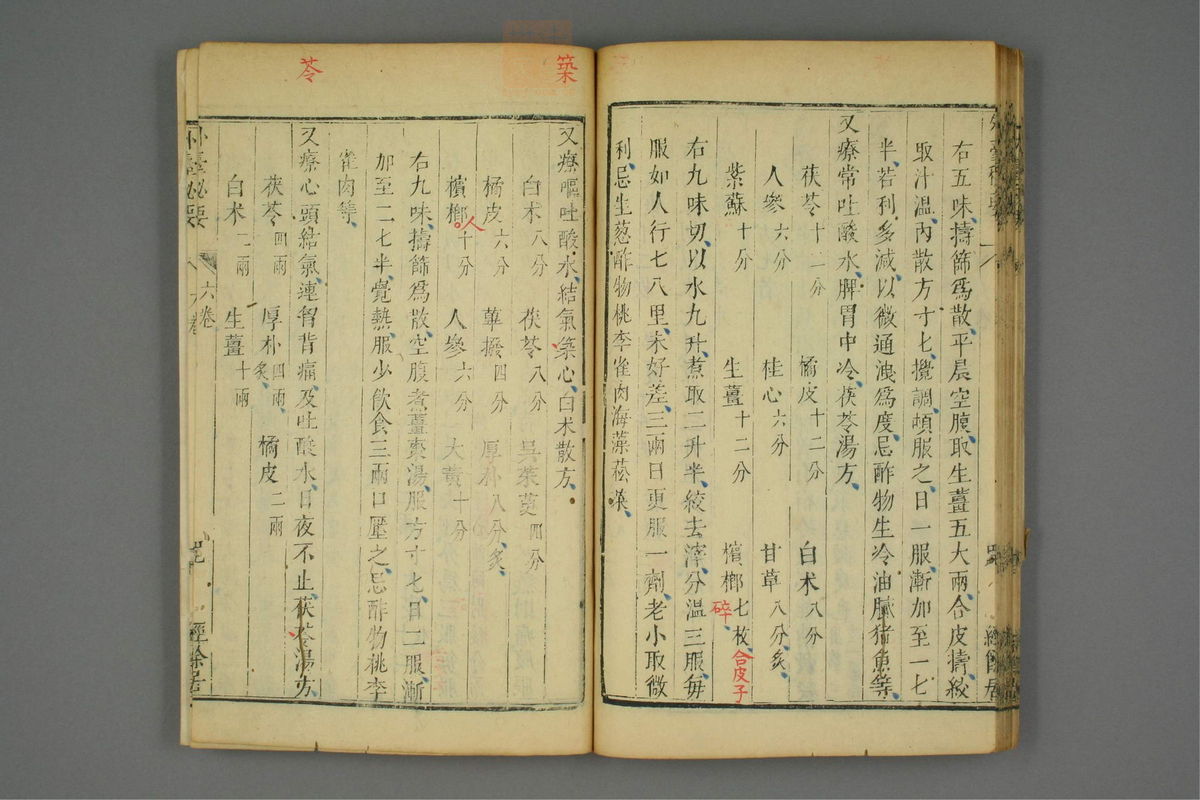 右五味擣篩爲散平晨空腹取生薑五大兩合皮擣絞
取汁溫內散方寸匕攪調頓服之日一服漸加至一匕
半若利多減以微通洩爲度忌酢物生冷油膩猪魚等
又療常吐酸水脾胃中冷茯苓湯方
茯苓十二分 橘皮十二分 白朮八分
人參六分 桂心六分 甘草八分炙
紫蘇十分 生薑十二分 檳榔七枚
碎
合皮子
右九味切以水九升煮取二升半絞去滓分溫三服每
服如人行七八里未好差三兩日更服一劑老小取微
利忌生葱酢物桃李雀肉海藻菘菜
築
又療嘔吐酸水結氣築心白朮散方
白朮八分 茯苓八分 吳茱萸四分
橘皮六分 蓽撥四分 厚朴八分炙
檳榔十分 人參六分 大黃十分
人
右九味擣篩爲散空腹煮薑棗湯服方寸匕日二服漸
加至二匕半覺熱服少飲食三兩口壓之忌酢物桃李
雀肉等
苓
又療心頭結氣連胷背痛及吐酸水日夜不止茯苓湯方
茯苓四兩 厚朴四兩炙 橘皮二兩
白朮二兩 生薑十兩
外臺秘要 六卷 經餘居